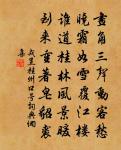 畫角三聲動客愁
曉霜如雪覆江樓
誰道桂林風景暖
到來重著皂貂裘
戎昱桂州口號詞典網
集